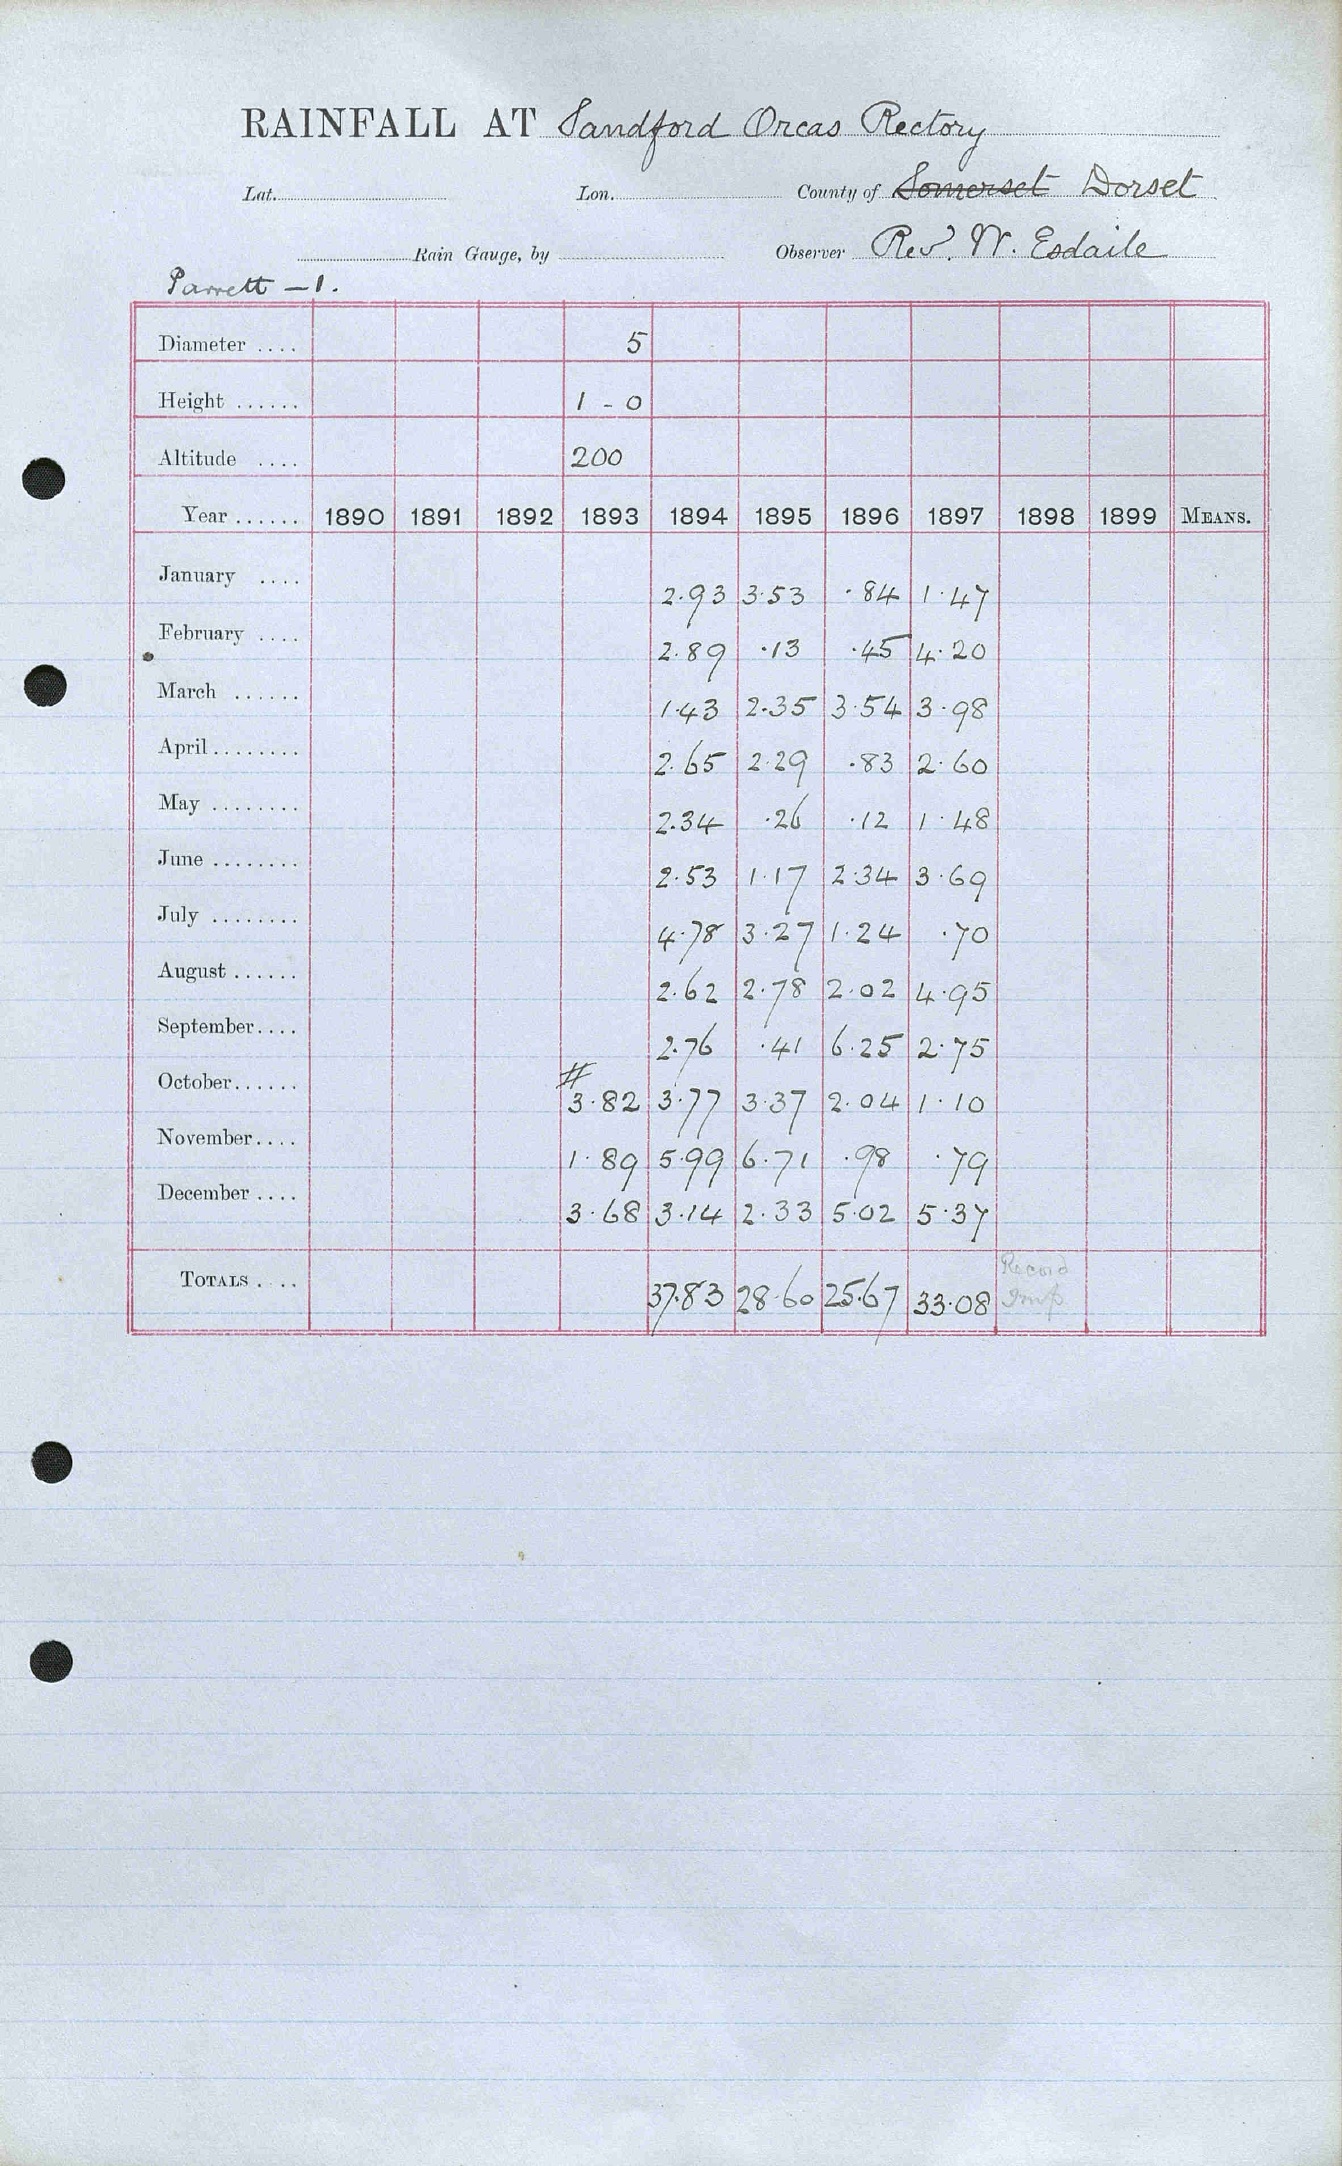 RAINFALL AT Sandford Orcas Rectory
Lat. Lon. County of Somerset Dorset
Rain Gauge, by Observer Rev. W. Esdaile
Parrett – 1.
Diameter .... 5
Height ...... 1 - 0
Altitude .... 200
Year ...... 1890 1891 1892 1893 1894 1895 1896 1897 1898 1899 MEANS.
January .... 2.93 3.53 .84 1.47
February .... 2.89 .13 .45 4.20
March ...... 1.43 2.35 3.54 3.98
April ........ 2.65 2.29 .83 2.60
May ........ 2.34 .26 .12 1.48
June ........ 2.53 1.17 2.34 3.69
July ........ 4.78 3.27 1.24 .70
August ...... 2.62 2.78 2.02 4.95
September.... 2.76 .41 6.25 2.75
#
October...... 3.82 3.77 3.37 2.04 1.10
November.... 1.89 5.99 6.71 .98 .79
December .... 3.68 3.14 2.33 5.02 5.37
Record
TOTALS .... 37.83 28.60 25.67 33.08 Imp.